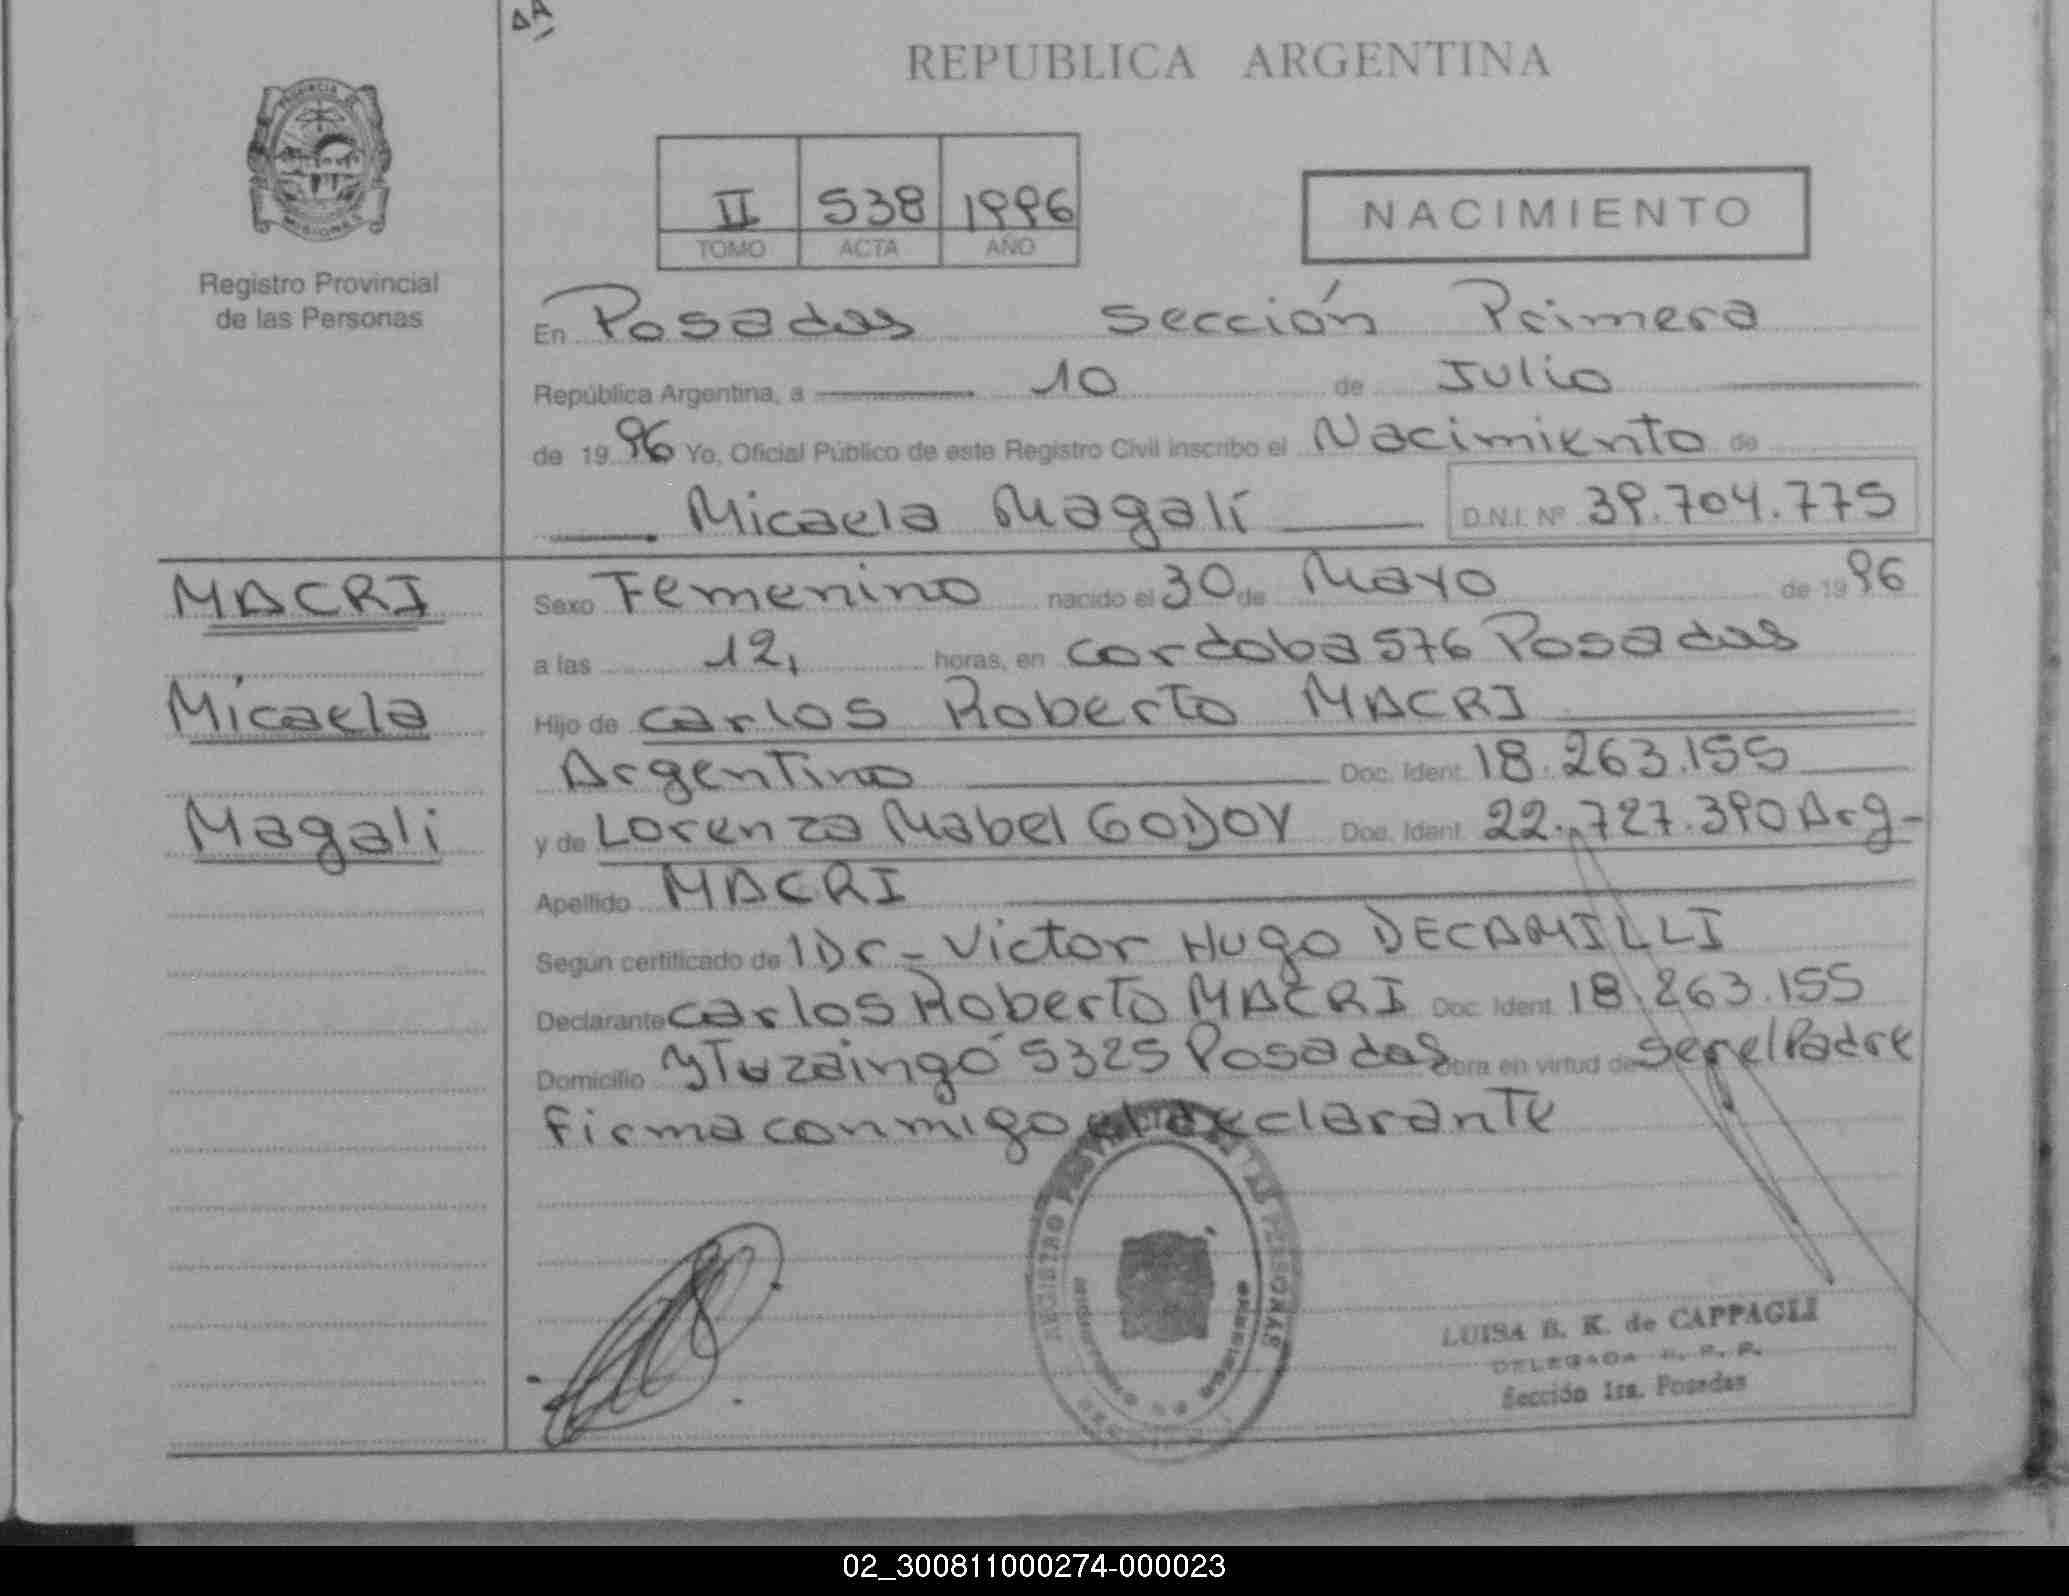 REPUBLICA ARGENTINA
PROVINCIA DE
MISIONES
Registro Provincial
de las Personas
II 538 1996
TOMO ACTA AÑO
NACIMIENTO
En Posadas sección Primera
República Argentina, a 10 de Julio
de 1996 Yo, Oficial Público de este Registro Civil inscribo el Nacimiento de
Micaela Magalí D.N.I. Nº 39.704.775
MACRI
Micaela
Magali
Sexo Femenino nacido el 30 de Mayo de 1996
a las 12, horas, en cordoba 576 Posadas
Hijo de carlos Roberto MACRI
Argentino Doc. Ident. 18.263.155
y de Lorenza Mabel GODOY Doc. Ident. 22.727.390 Arg-
Apellido MACRI
Según certificado de lDr- Victor Hugo DECAMILLI
Declarante carlos Roberto MACRI Doc. Ident. 18.263.155
Domicilio YTuzaingó 5325 Posadas obra en virtud de ser el Padre
firma conmigo el declarante
REGISTRO PROVINCIAL DE LAS PERSONAS
LUISA B. K. de CAPPAGLI
DELEGADA R. P. P.
Sección 1ra. Posadas
02_300811000274-000023